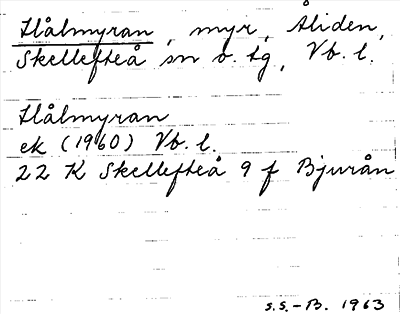 Hålmyran, myr, Åliden,
Skellefteå sn o. tg, Vb. l.
Hålmyran
ek (1960) Vb. l.
22 K Skellefteå 9 f Bjurån
S.S.-B. 1963